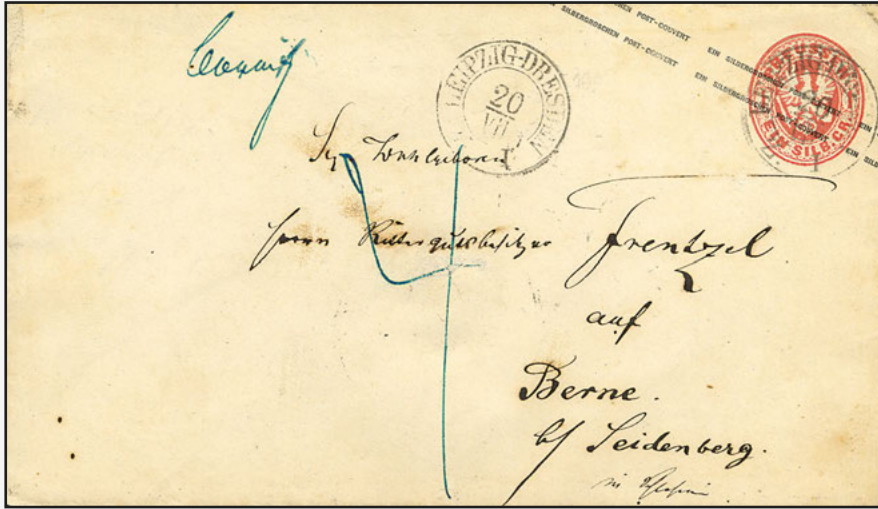 EIN SILBERGROSCHEN POST-COUVERT EIN SILBERGROSCHEN POST-COUVERT
LEIPZIG-DRESDEN
20
VII
I
EIN SILB. GR.
LEIPZIG-DRES
20
I
4
Sr Wohlgeboren
Herrn Rittergutsbesitzer Frentzel
auf
Berne.
b/ Seidenberg.
in Schlesien